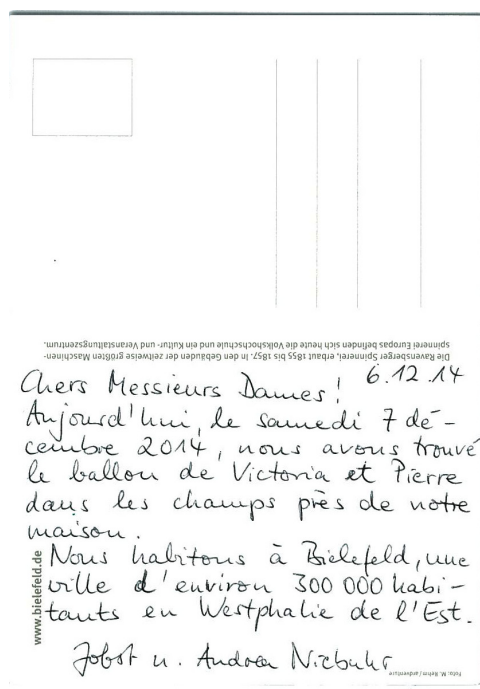 Die Ravensberger Spinnerei, erbaut 1855 bis 1857. In den Gebäuden der zeitweise größten Maschinen-
spinnerei Europas befinden sich heute die Volkshochschule und ein Kultur- und Veranstaltungszentrum.
Chers Messieurs Dames! 6.12.14
Aujourd'hui, le samedi 7 dé-
cembre 2014, nous avons trouvé
le ballon de Victoria et Pierre
dans les champs près de notre
maison.
Nous habitons à Bielefeld, une
ville d'environ 300 000 habi-
tants en Westphalie de l'Est.
Jobst u. Andrea Niebuhr
www.bielefeld.de
Foto: M. Rehm / ardventure